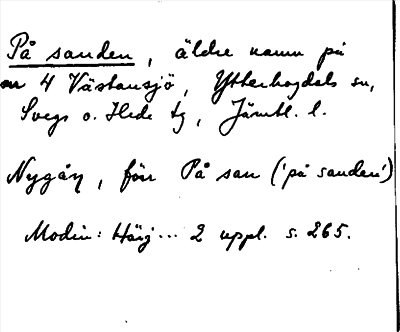 På sanden, äldre namn på
nr 4 Västansjö, Ytterhogdals sn,
Svegs o. Hede tg, Jämtl. l.
Nygårn, förr På san ('på sanden')
Modin: Härj... 2 uppl. s. 265.